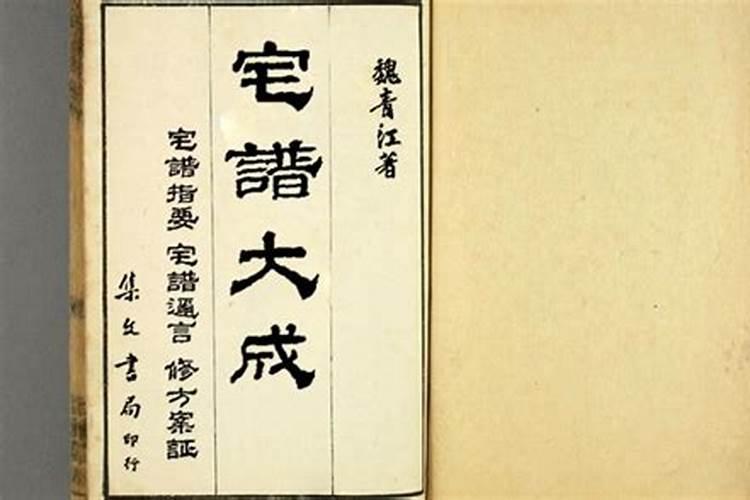 魏青江著
宅譜大成
宅譜指要 宅譜邇言 修方案証
集文書局印行